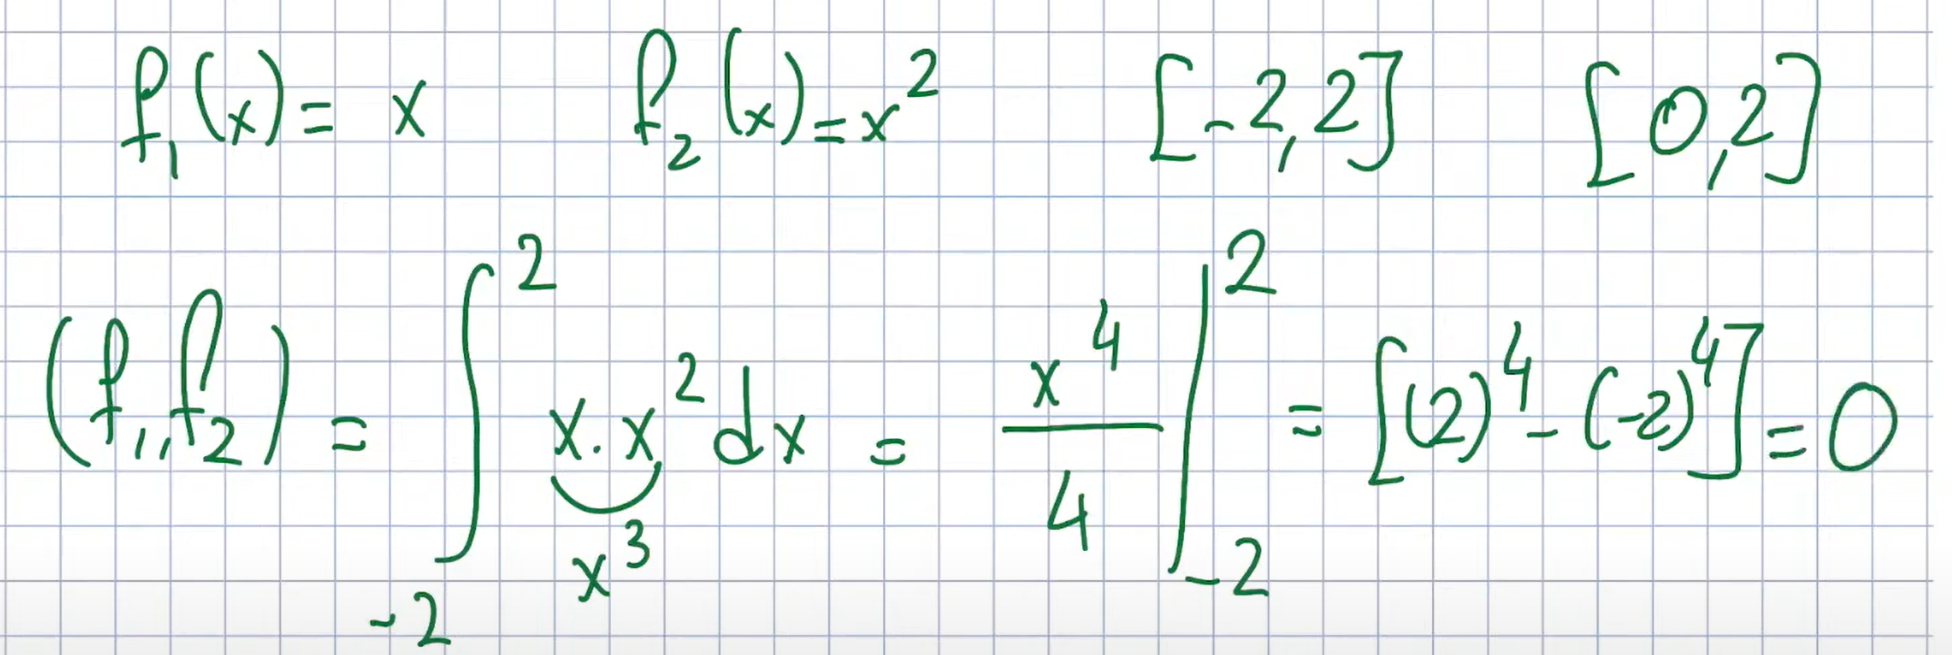 f₁(x) = x f₂(x) = x² [-2,2] [0,2]
(f₁,f₂) = ∫₋₂² x.x² dx = x⁴/4 |₋₂² = [(2)⁴ - (-2)⁴] = 0
x³